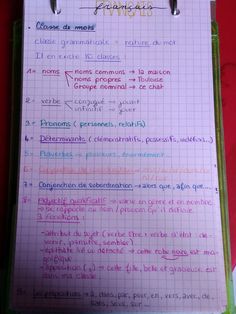 français
• Classe de mots :
classe grammaticale = nature du mot
Il en existe 10 classes :
1= noms
noms communs → la maison
noms propres → Toulouse
Groupe nominal → ce chat
2= verbe
conjugué → jouait
infinitif → jouer
3= Pronoms ( personnels, relatifs)
4= Déterminants ( démonstratifs, possessifs, indéfini...)
5= Adverbes → plusieurs, énormément...
7= Conjonction de subordination → alors que, afin que...
8= Adjectif qualificatif → varie en genre et en nombre
→ se rapporte au nom / pronom qu'il définie
3 fonctions :
-attribut du sujet ( verbe être + verbe d'état : de-
venir, paraître, sembler)
-épithète lié ou détaché → cette robe rose est ma-
gnifique
-apposition (,,) → cette fille, belle et gracieuse, est
dans ma classe
9= Prépositions → à, dans, par, pour, en, vers, avec, de,
sans, sous, sur ...